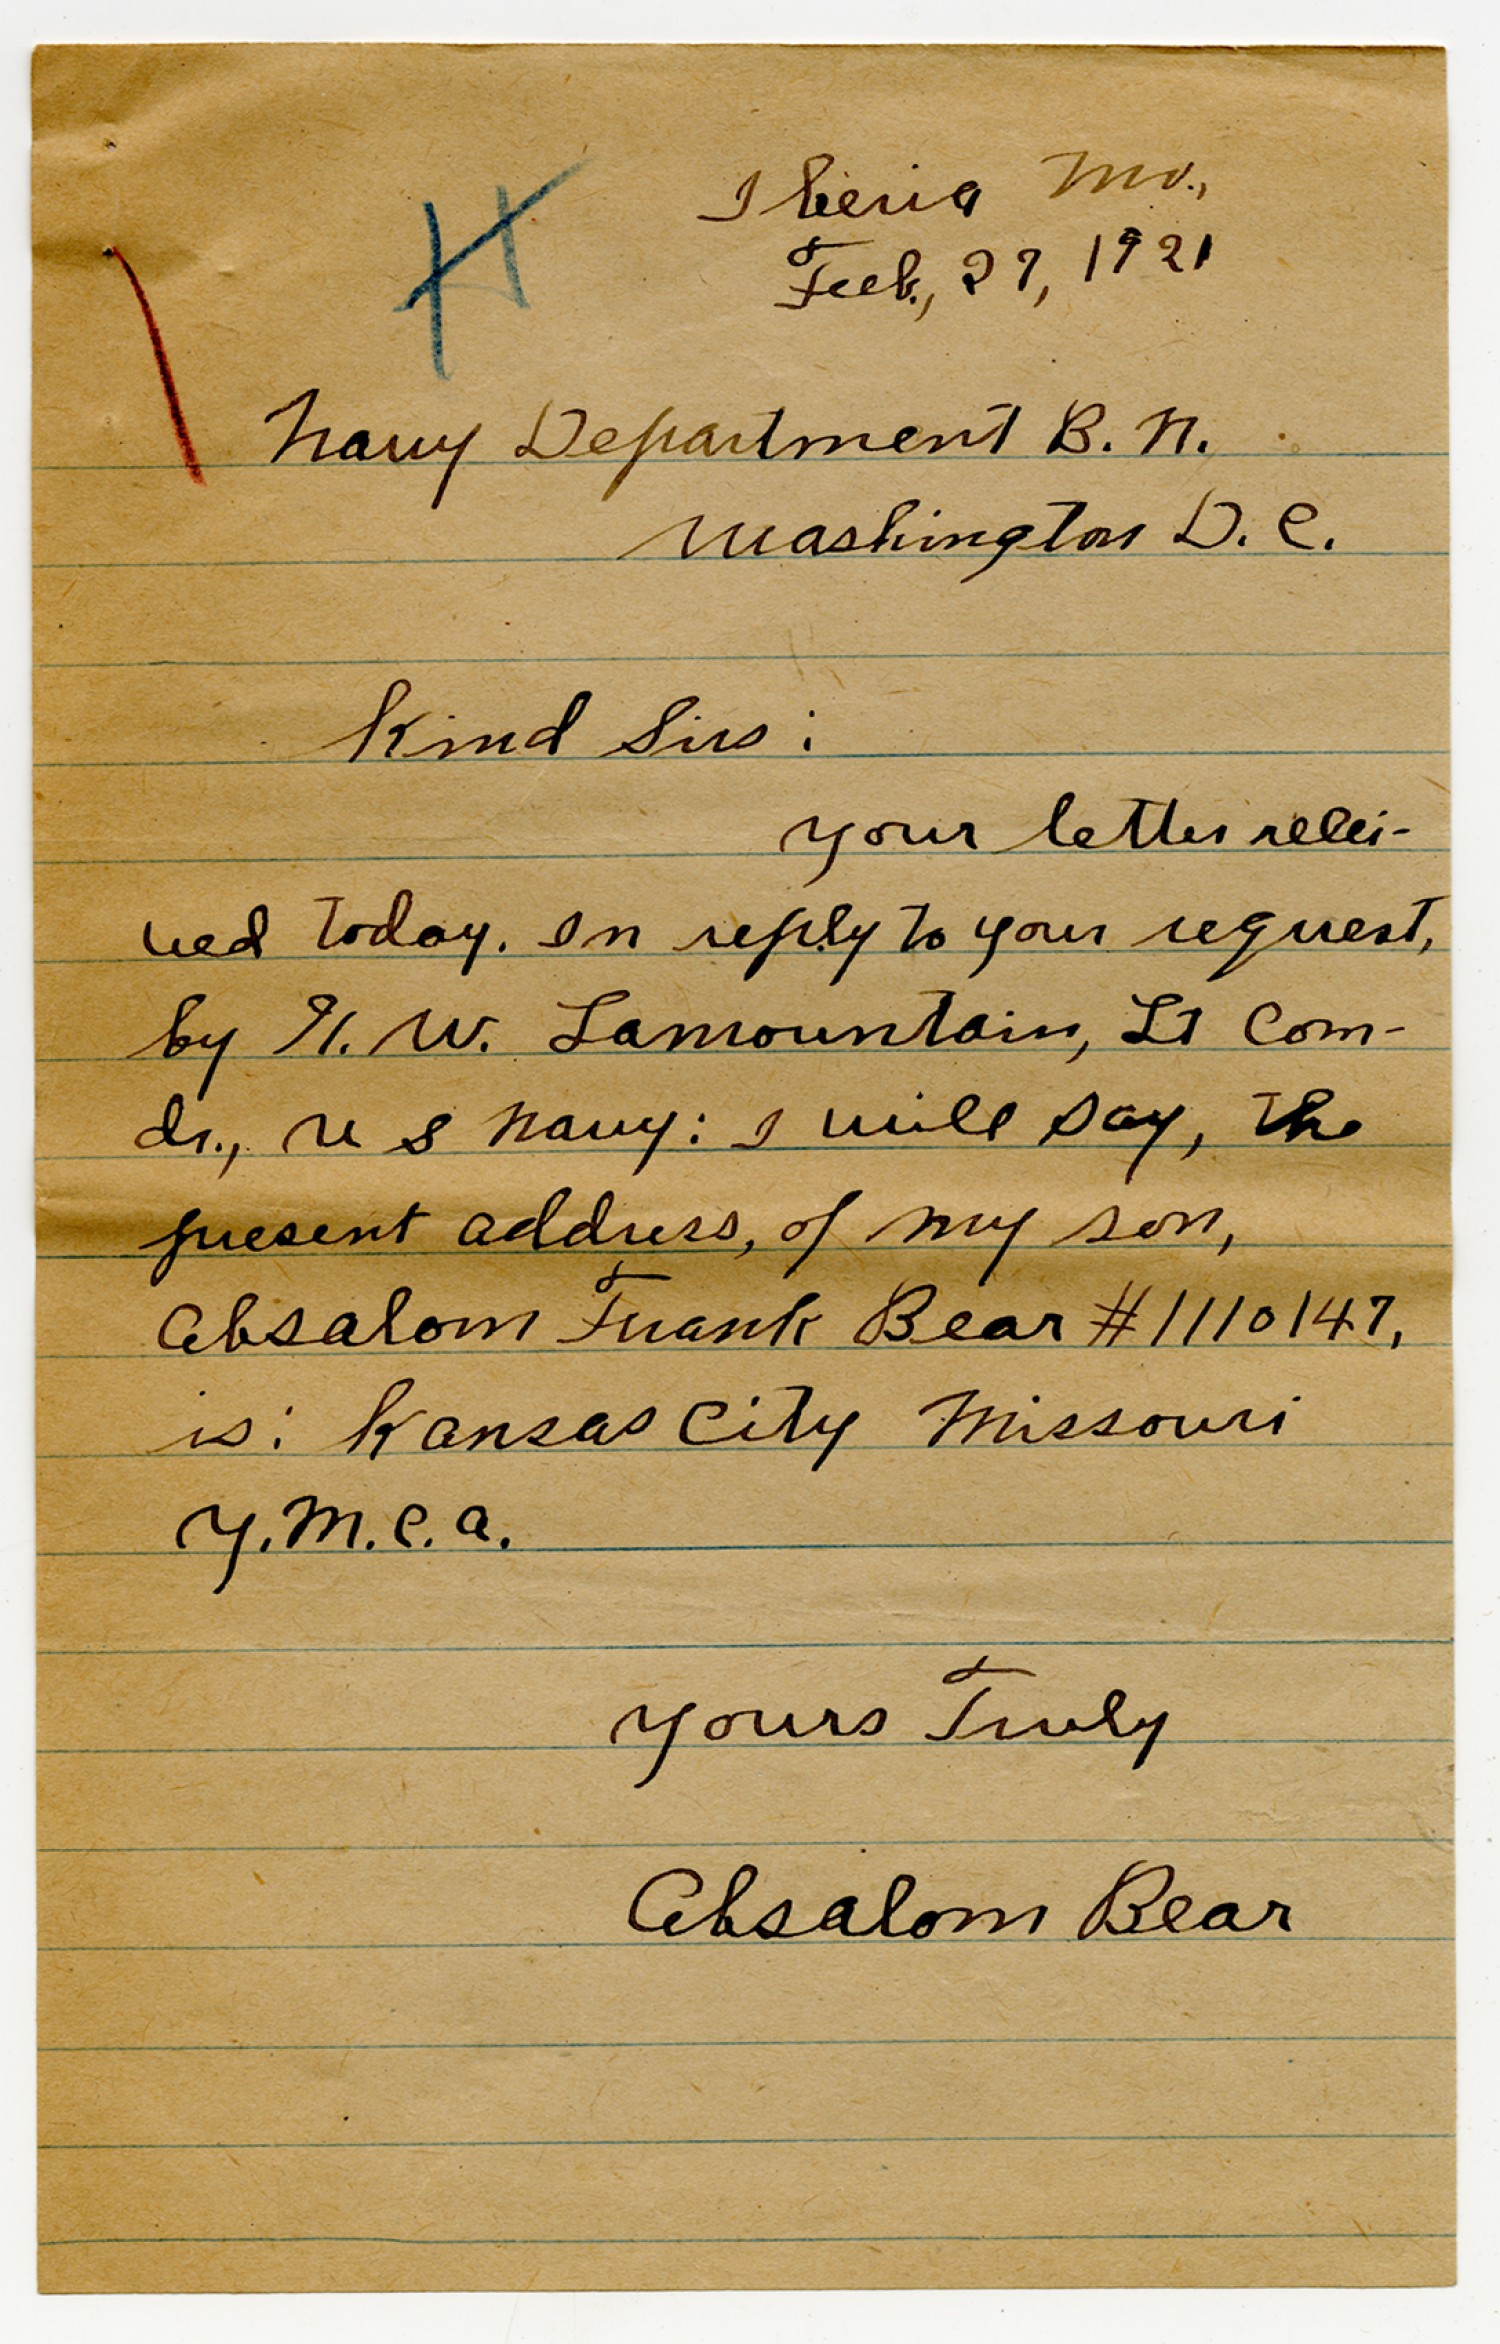 Iberia Mo.,
Feb., 27, 1921
H
Navy Department B. N.
Washington D. C.
Kind Sirs:
Your letter recei-
ved today. In reply to your request,
by H. W. Lamountain, Lt Com-
dr., U S Navy: I will say, the
present address, of my son,
Absalom Frank Bear #1110147,
is: Kansas City Missouri
Y.M.C.A.
Yours Truly
Absalom Bear